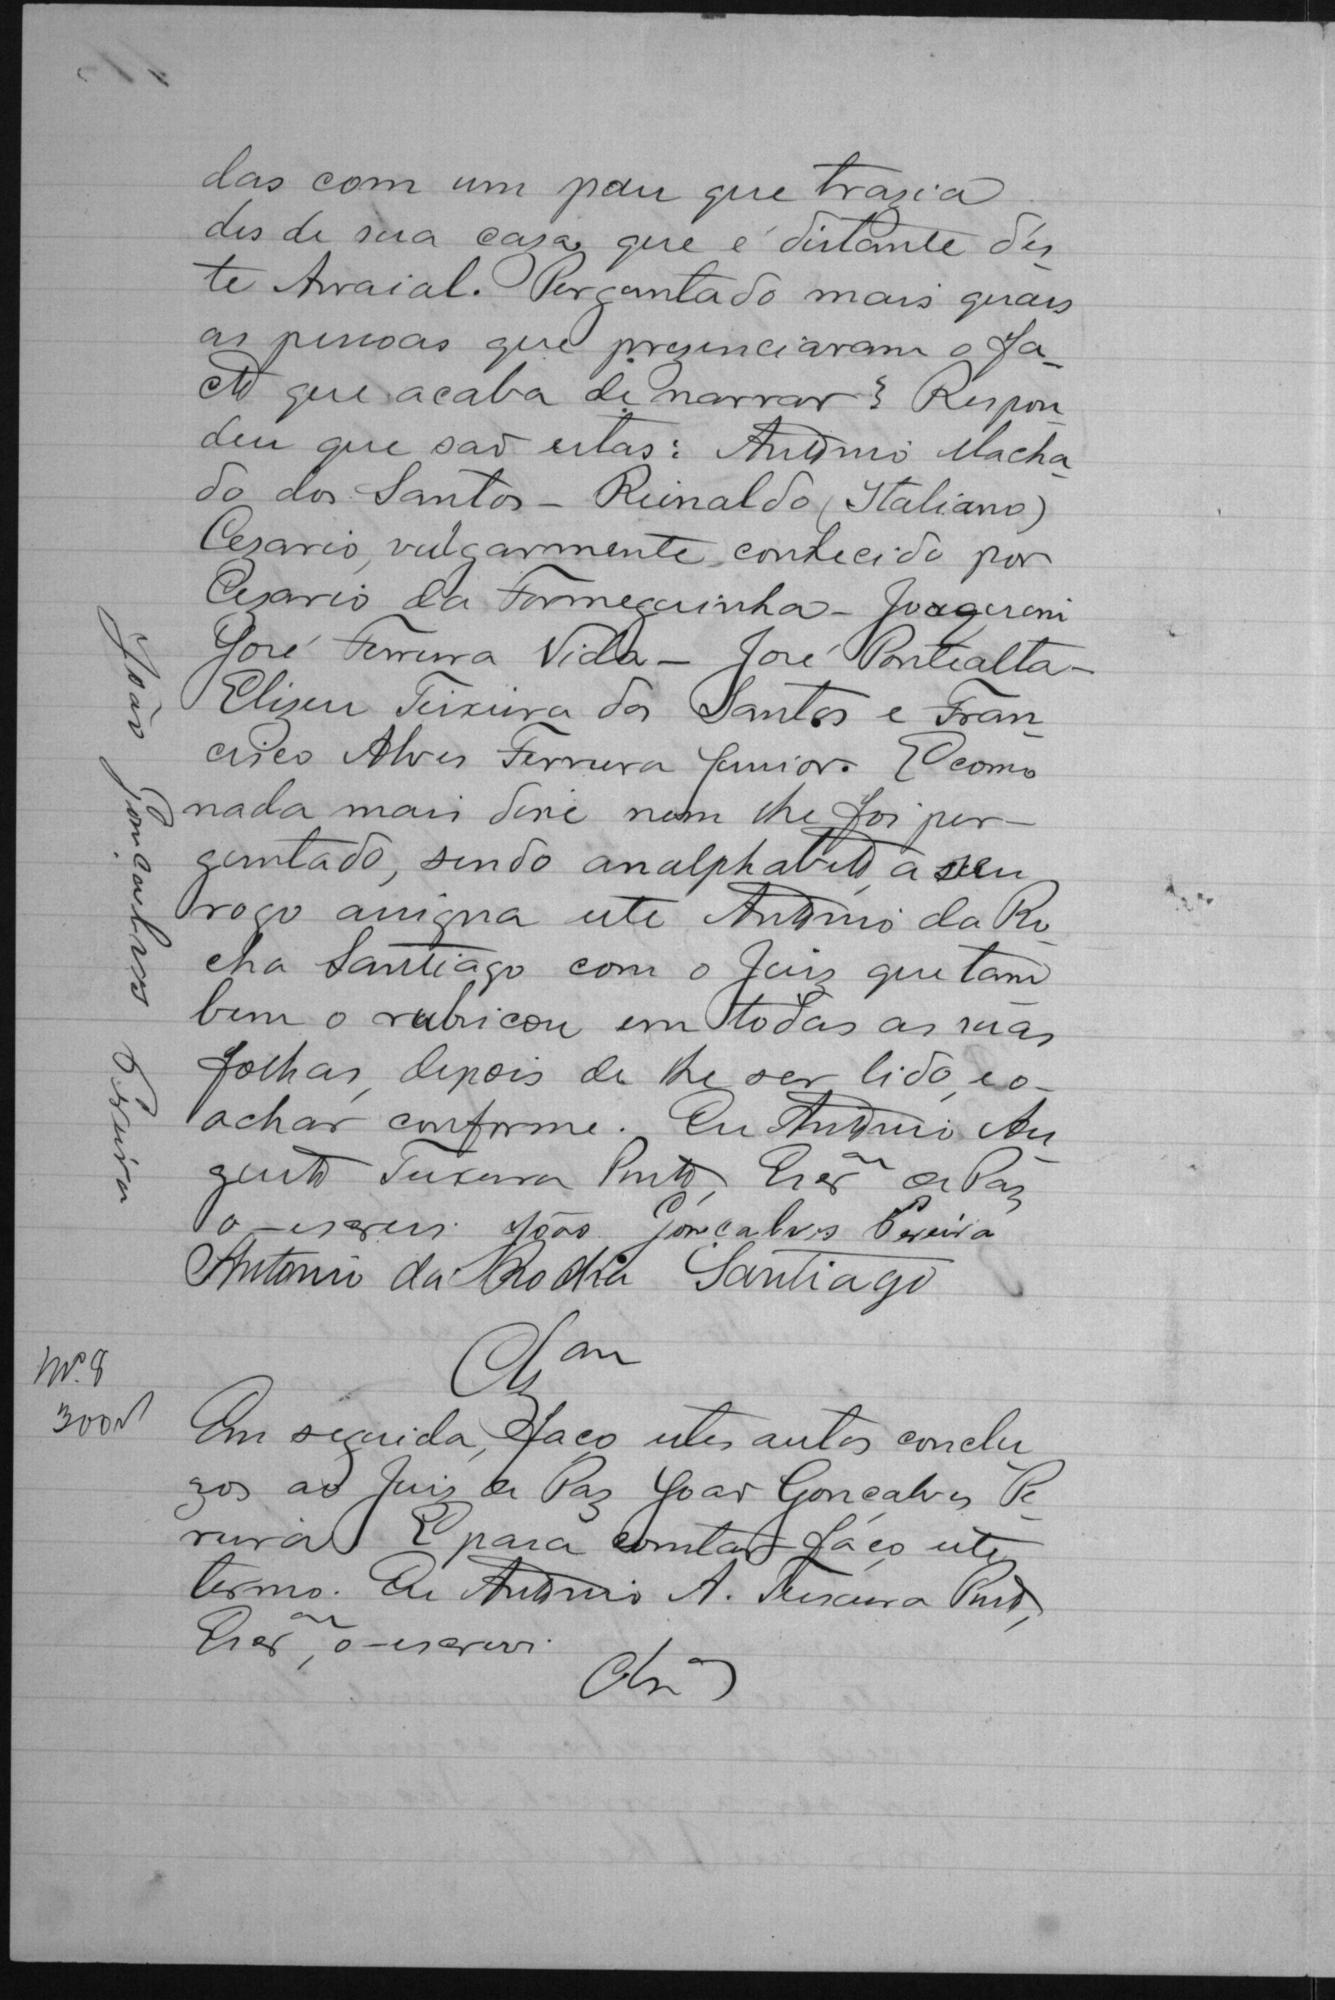 das com um pau que trazia
desde sua caza, que é distante dés-
te Arraial. Perguntado mais quaes
as pessoas que prezenciaram o fa-
cto que acaba de narrar? Respon-
deu que saõ estas: Antonio Macha-
do dos Santos - Reinaldo (Italiano)
Cezario, vulgarmente conhecido por
Cezario da Formeguinha - Joaquim
José Ferreira Vida - José Pontealta -
Elizeu Teixeira dos Santos e Fran-
cisco Alves Ferreira Junior. E como
nada mais disse nem lhe foi per-
guntado, sendo analphabeto, a seu
rogo assigna este Antonio da Ro-
cha Santiago com o Juiz que tam
bem o rubricou em todas as suas
folhas, depois de lhe ser lido, e o-
achar conforme. Eu Antonio Au-
gusto Teixeira Pinto, Escr.am de Paz
o-escrevi. João Gonçalves Pereira
Antonio da Rocha Santiago
João Gonçalves Pereira
Clsam
Nº. 8
300rs
Em seguida, faço estes autos conclu-
zos ao Juiz de Paz Joaõ Gonçalves Pe-
reira. E para constar faço este
termo. Eu Antonio A. Teixeira Pinto,
Escr.am, o-escrevi.